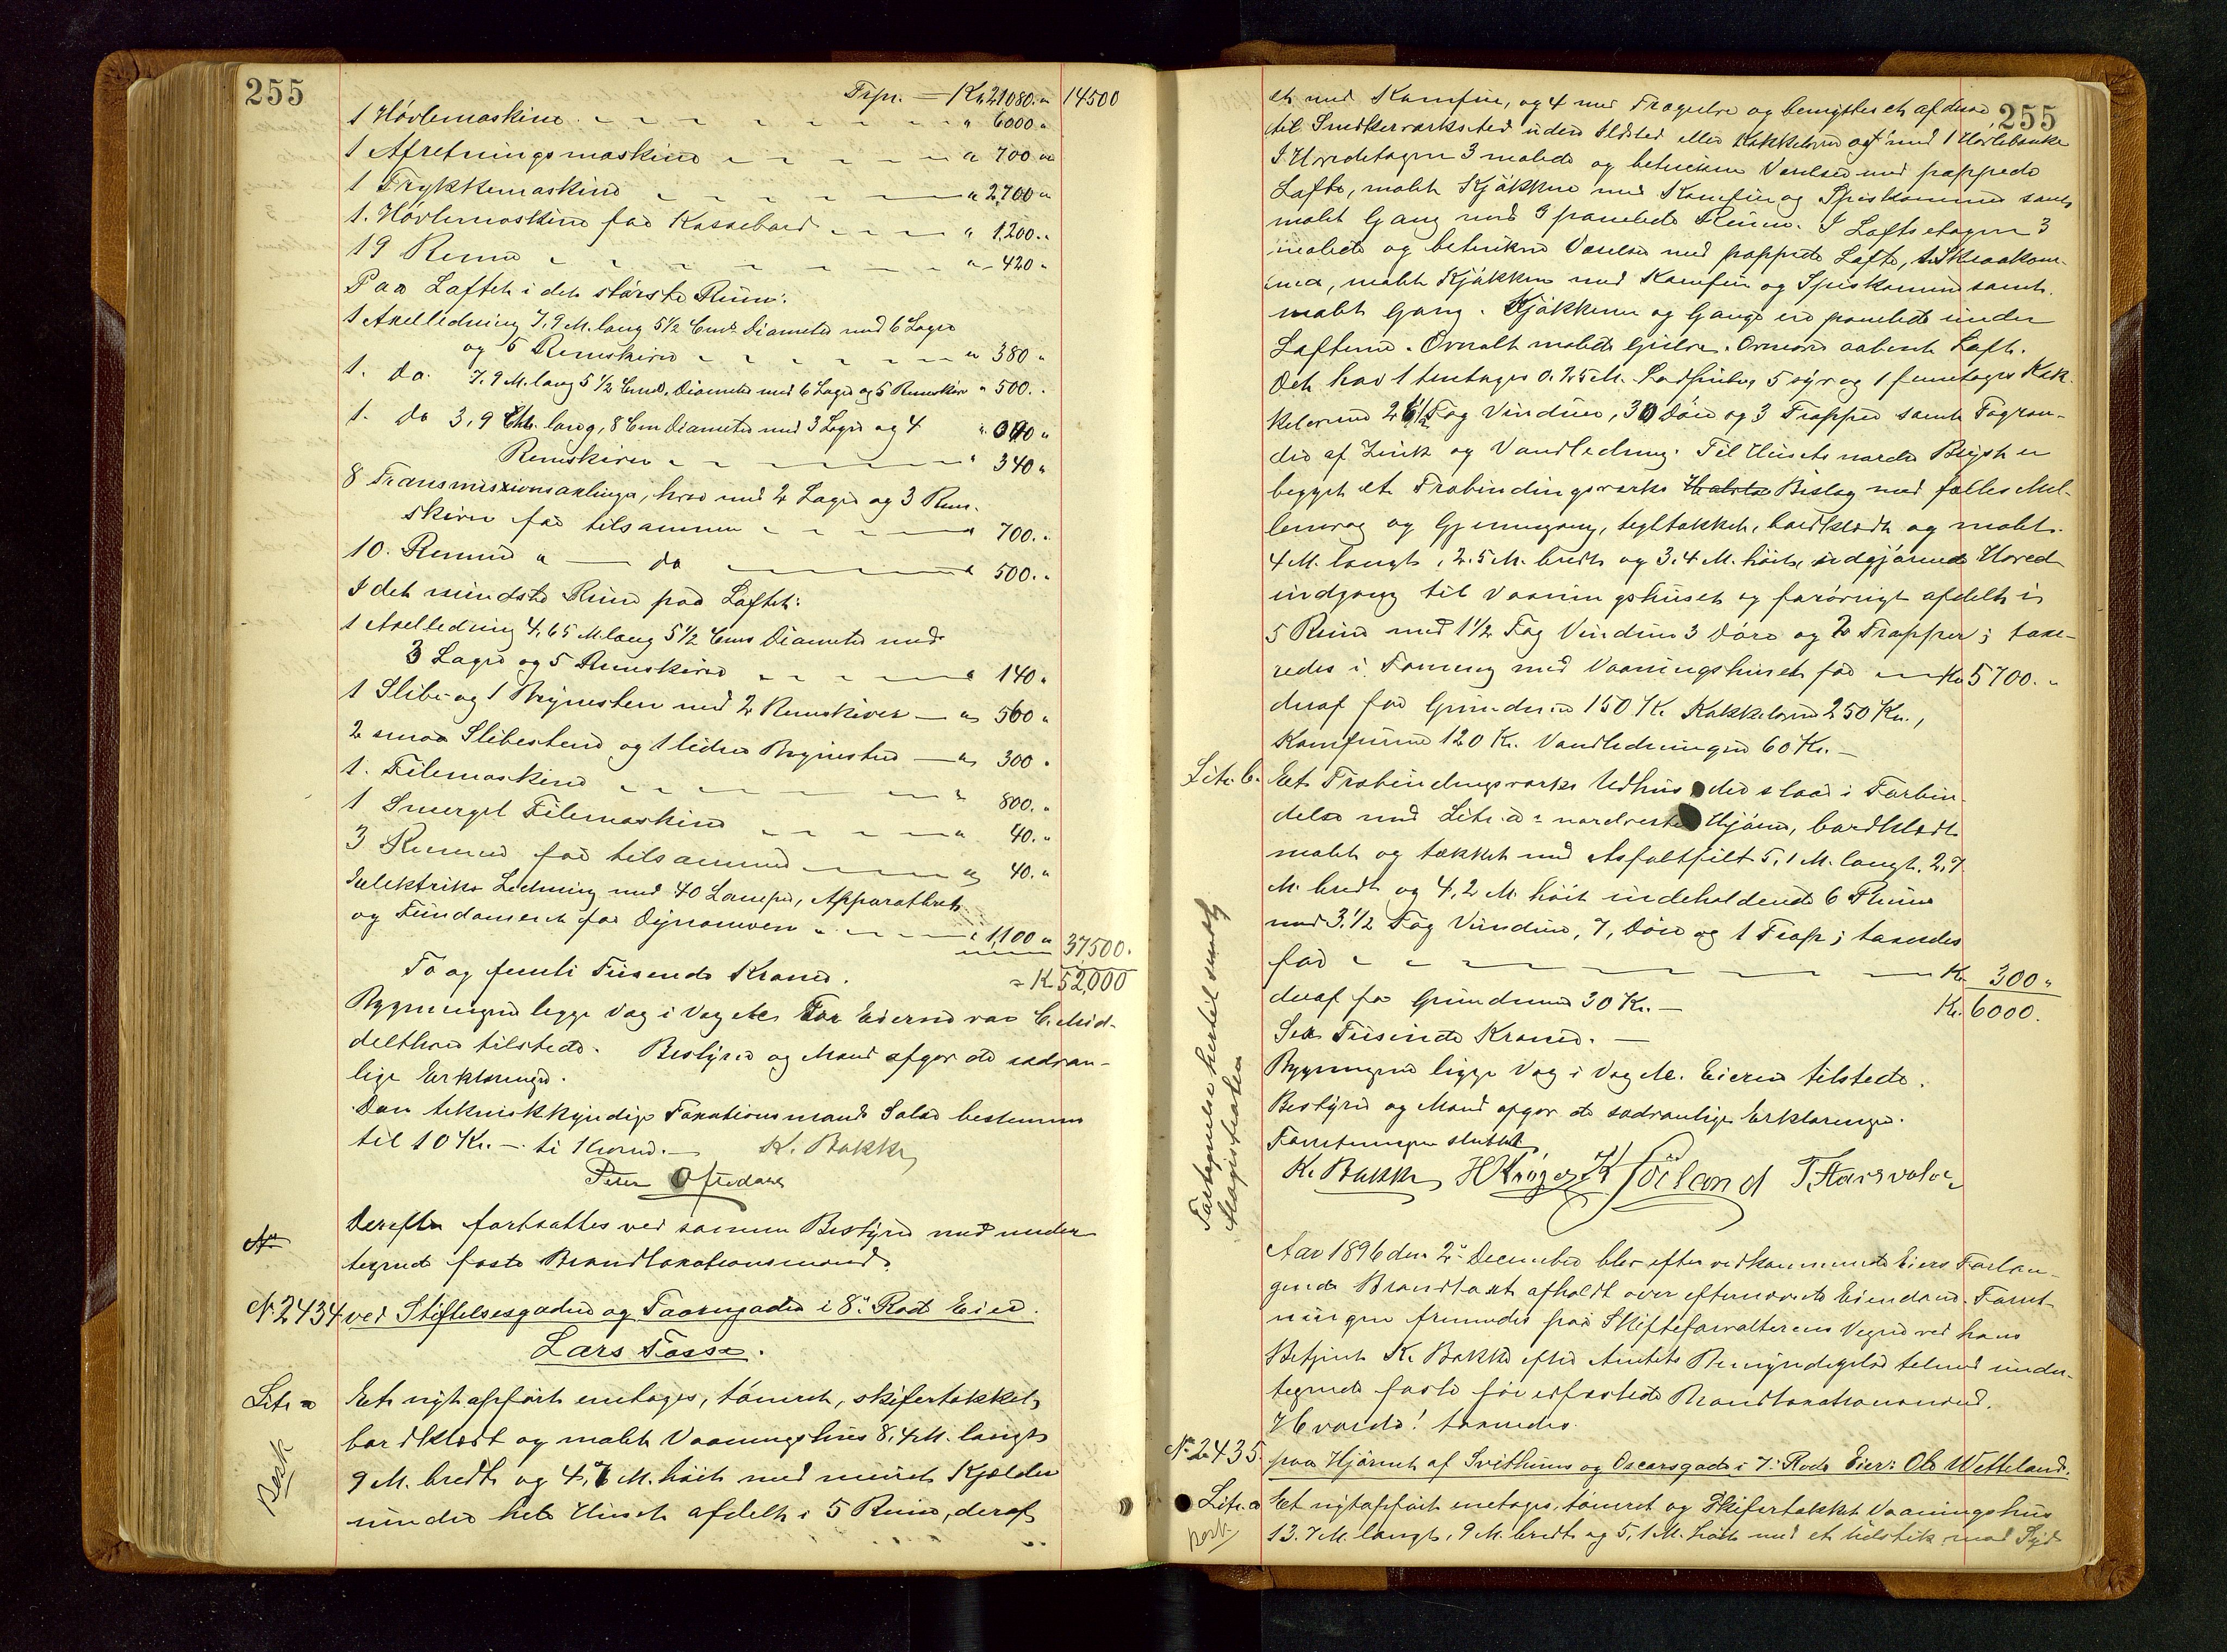 255
Trpr. — Kr. 21080.„ 14500
1 Høvlemaskine „ 6000 „
1 Afretningsmaskine „ 700 „
1 Trykkemaskine „ 2,700 „
1. Høvlemaskine for Kassebord „ 1,200 „
19 Remme „ 420 „
Paa Loftet i det største Rum:
1 Axelledning 7,9 M. lang 5 1/2 Cmd. Diameter med 6 Lagre
og 5 Remskiver „ 380 „
1. do. 7,9 M. lang 5 1/2 Cmd. Diameter med 6 Lager og 5 Remskiver „ 500 „
1. do 3,9 M. lang, 8 Cm Diameter med 3 Lagre og 4
Remskiver „ 340 „
8 Transmissionsaxlinger, hver med 2 Lagre og 3 Rem-
skiver for tilsammen „ 700 „
10. Remme „ — do „ 500 „
I det mindste Rum paa Loftet:
1 Axelledning 4,65 M lang 5 1/2 Cms Diameter med
3 Lagre og 5 Remskiver „ 140 „
1 Slibe- og 1 Brynesten med 2 Remskiver — „ 560 „
2 smaa Slibestene og 1 liden Brynesten — „ 300 „
1. Filemaskine „ 800 „
1 Smergel Filemaskine „ 40 „
3 Remme for tilsammen „ 40 „
Elektriske Ledning med 40 Lamper, Apparatbret
og Fundament for Dynamoen „ 1,100 „ 37500.
To og femti Tusende Kroner. = Kr. 52,000
Bygningen ligge Vag i Vag Al. For Eierne var C. Mid-
delthon tilstede. Bestyrer og Mænd afgav de sædvan-
lige Erklæringer.
Den tekniskkyndige Taxationsmands Salær bestemmes
til 10 Kr. — ti Kroner. — K. Bakke
Peter Oftedahl
Derefter fortsattes ved samme Bestyrer med under-
tegnede faste Brandtaxationsmænd.
No 2434 ved Stiftelsesgaden og Taarngaden i 8de Rode Eier.
Lars Tosse.
Litr. a Et nyt opført enetages, tømret, skifertækket,
bordklædt og malet Vaaningshus 8,4 M. langt
9 M. bredt og 4,7 M. høit med muret Kjælder
under hele Huset afdelt i 5 Rum, deraf
Besk
255
et med Komfur, og 4 med Trægulve og benyttes et af disse
til Snedkerværksted uden Ildsted eller Kakkelovn og med 1 Høvlebænk
I Hovedetagen 3 malede og betrukne Værelser med pappede
Lofte, malet Kjøkken med Komfur og Spiskammer samt
malet Gang med 9 panelede Rum. I Loftsetagen 3
malede og betrukne Værelser med pappede Lofte, 1 Skraakam-
mer, malet Kjøkken med Komfur og Spiskammer samt
malet Gang. Kjøkkener og Gange ere panelede under
Lofterne. Overalt malede Gulve. Ovenover aabent Loft.
Det har 1 toetages 0,75 M. Ladpiber, 5 syv og 1 femetages Kak-
kelovne 26 1/2 Fag Vinduer, 30 Døre og 3 Trapper samt Tagren-
der af Zink og Vandledning. Til Husets nordre Bryst er
bygget et Træbindingsværks Bislag med fælles Mel-
lemvæg og Gjennemgang, tegltækket, bordklædt og malet
4 M. langt, 2,5 M. bredt og 3,4 M. høit, udgjørende Hoved
indgang til Vaaningshuset og forøvrigt afdelt i
5 Rum med 1 1/2 Fag Vinduer 3 Døre og 2 Trapper; taxe-
redes i Forening med Vaaningshuset for — Kr. 5700.„
deraf for Grunden 150 Kr. Kakkelovne 250 Kr.,
Komfurerne 120 Kr. Vandledningen 60 Kr. —
Litr. b. Et Træbindingsværks Udhus der staar i Forbin-
delse med Litr. a's nordvestre Hjørne, bordklædt
malet og tækket med Asfaltfilt 5,1 M. langt. 2,7
M. bredt og 4,2 M. høit indeholdende 6 Rum
med 3 1/2 Fag Vinduer, 7 Døre og 1 Trap; taxeredes
for Kr. 300 „
deraf for Grundmur 30 Kr. — Kr. 6000.
Sex Tusinde Kroner. —
Bygningen ligge Vag i Vag Al. Eieren tilstede.
Bestyrer og Mænd afgav de sædvanlige Erklæringer.
Forretningen sluttet
K. Bakke
Fortegnelse hertil sendt
Magistraten
Aar 1896 den 2den December blev efter vedkommende Eiers Forlan-
gende Brandtaxt afholdt over efternævnte Eiendomme. Forret-
ningen fremmedes paa Skifteforvalterens Vegne ved hans
Betjent K. Bakke efter Amtets Bemyndigelse tilmed under-
tegnede faste før edfæstede Brandtaxationsmænd.
Hvorda! taxeredes.
No 2435. paa Hjørnet af Svithuns og Oscarsgade i 7. Rode Eier: Ole Wetteland.
Litr. a Et nytopført enetages, tømret og Skifertækket Vaaningshus
13.7 M. langt, 9 M. bredt og 5,1 M. høit med et Udstik mod Syd
Besk.